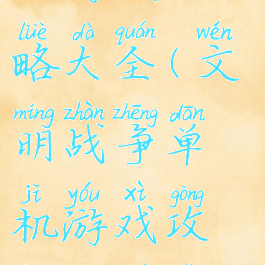 lüè dà quán wén
略大全(文
míng zhàn zhēng dān
明战争单
jī yóu xì gōng
机游戏攻